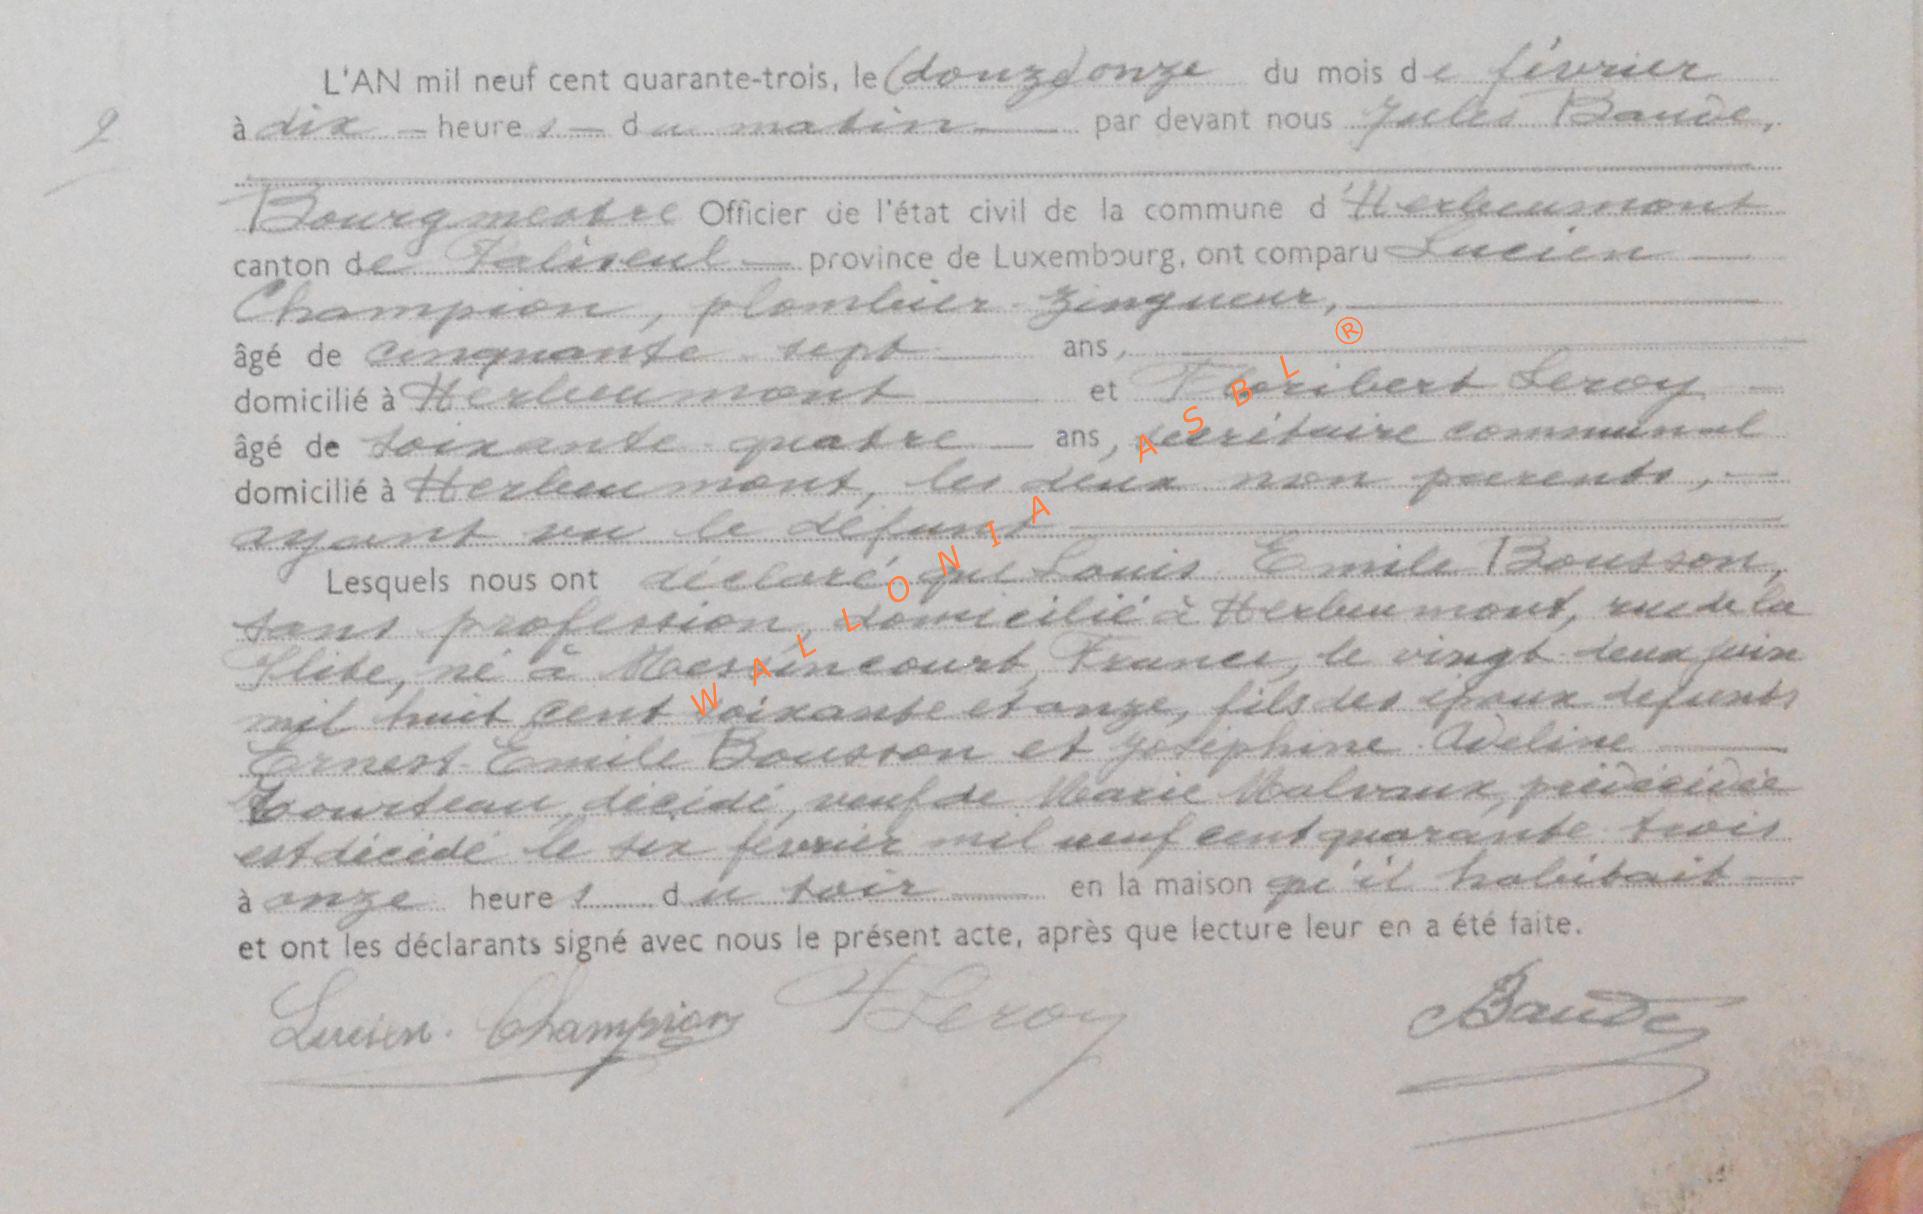 L'AN mil neuf cent quarante-trois, le (douze) onze du mois de février
2
à dix — heures — du matin — par devant nous Jules Baude,
Bourgmestre Officier de l'état civil de la commune d'Herbeumont
canton de Paliseul — province de Luxembourg, ont comparu Lucien —
Champion, plombier-zingueur,
âgé de cinquante sept ans,
domicilié à Herbeumont et Floribert Leroy —
âgé de soixante-quatre — ans, secrétaire communal
domicilié à Herbeumont, les deux non parents, —
ayant vu le défunt
Lesquels nous ont déclaré que Louis Emile Bousson,
sans profession, domicilié à Herbeumont, rue de la
né à Messincourt, France, le vingt-deux juin
mil huit cent soixante et onze, fils des époux defunts
Ernest-Emile Bousson et Joséphine-Adeline —
décédé, veuf de Marie Malvaux, prédécédée
est décédé le six février mil neuf cent quarante-trois
à onze heures du soir — en la maison qu'il habitait —
et ont les déclarants signé avec nous le présent acte, après que lecture leur en a été faite.
Lucien. Champion FLeroy Baude
WALLONIA ASBL ®